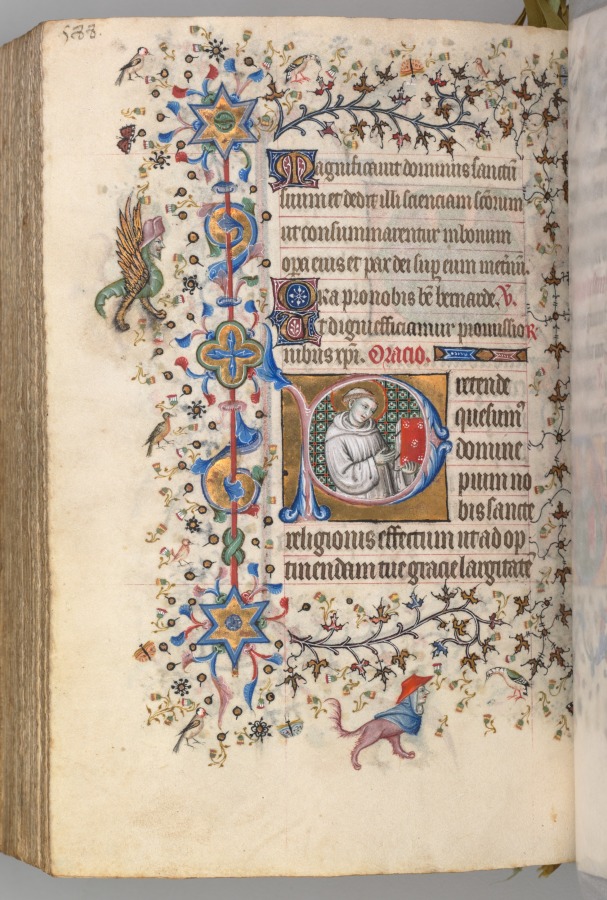 588.
Magnificavit dominus sanctū
suum et dedit illi scienciam scōrum
ut consummarentur in bonum
opa eius et pax dei sup eum metuū.
Ora pro nobis bē bernarde. V.
Ut digni efficiamur promissio
nibus xp̄i. Oracio.
Pretende
quesum̄
domine
pium no
bis sancte
religionis effectum ut ad op
tinendam tue gracie largitate